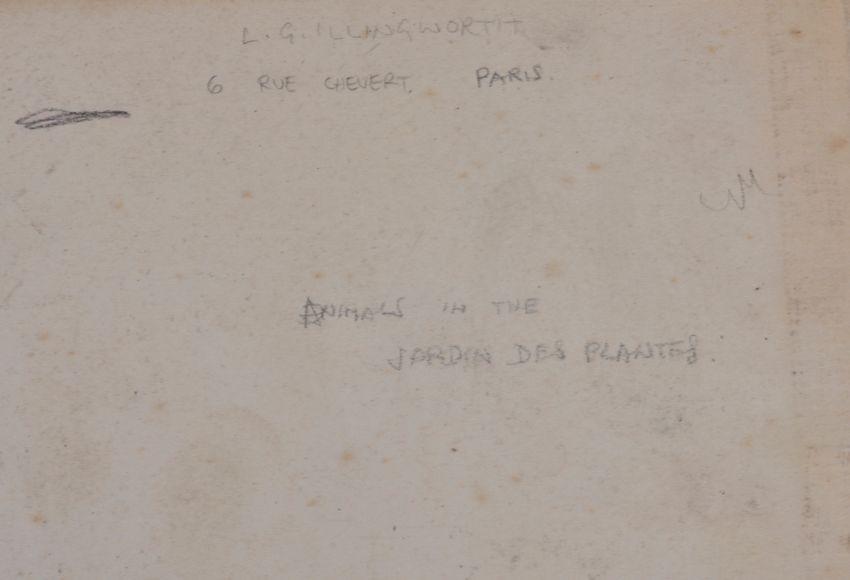 L. G. ILLINGWORTH
6 RUE CHEVERT. PARIS.
ANIMALS IN THE
JARDIN DES PLANTES.